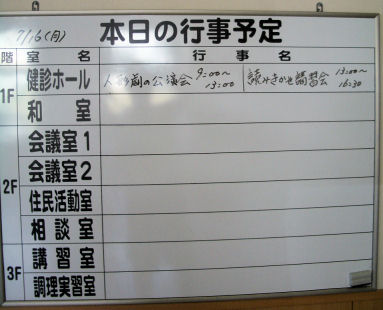 7/16(月) 本日の行事予定
階 室名 行事名
1F 健診ホール 人形劇の公演会 9:00〜13:00 読みきかせ講習会 13:00〜16:30
和室
2F 会議室1
会議室2
住民活動室
相談室
3F 講習室
調理実習室